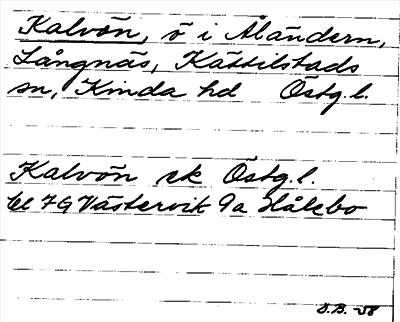 Kalvön, ö i Åländern,
Långnäs, Kättilstads
sn, Kinda hd Östg.l.
Kalvön ek Östg.l.
bl 7G Västervik 9a Hålebo
S.B. -58